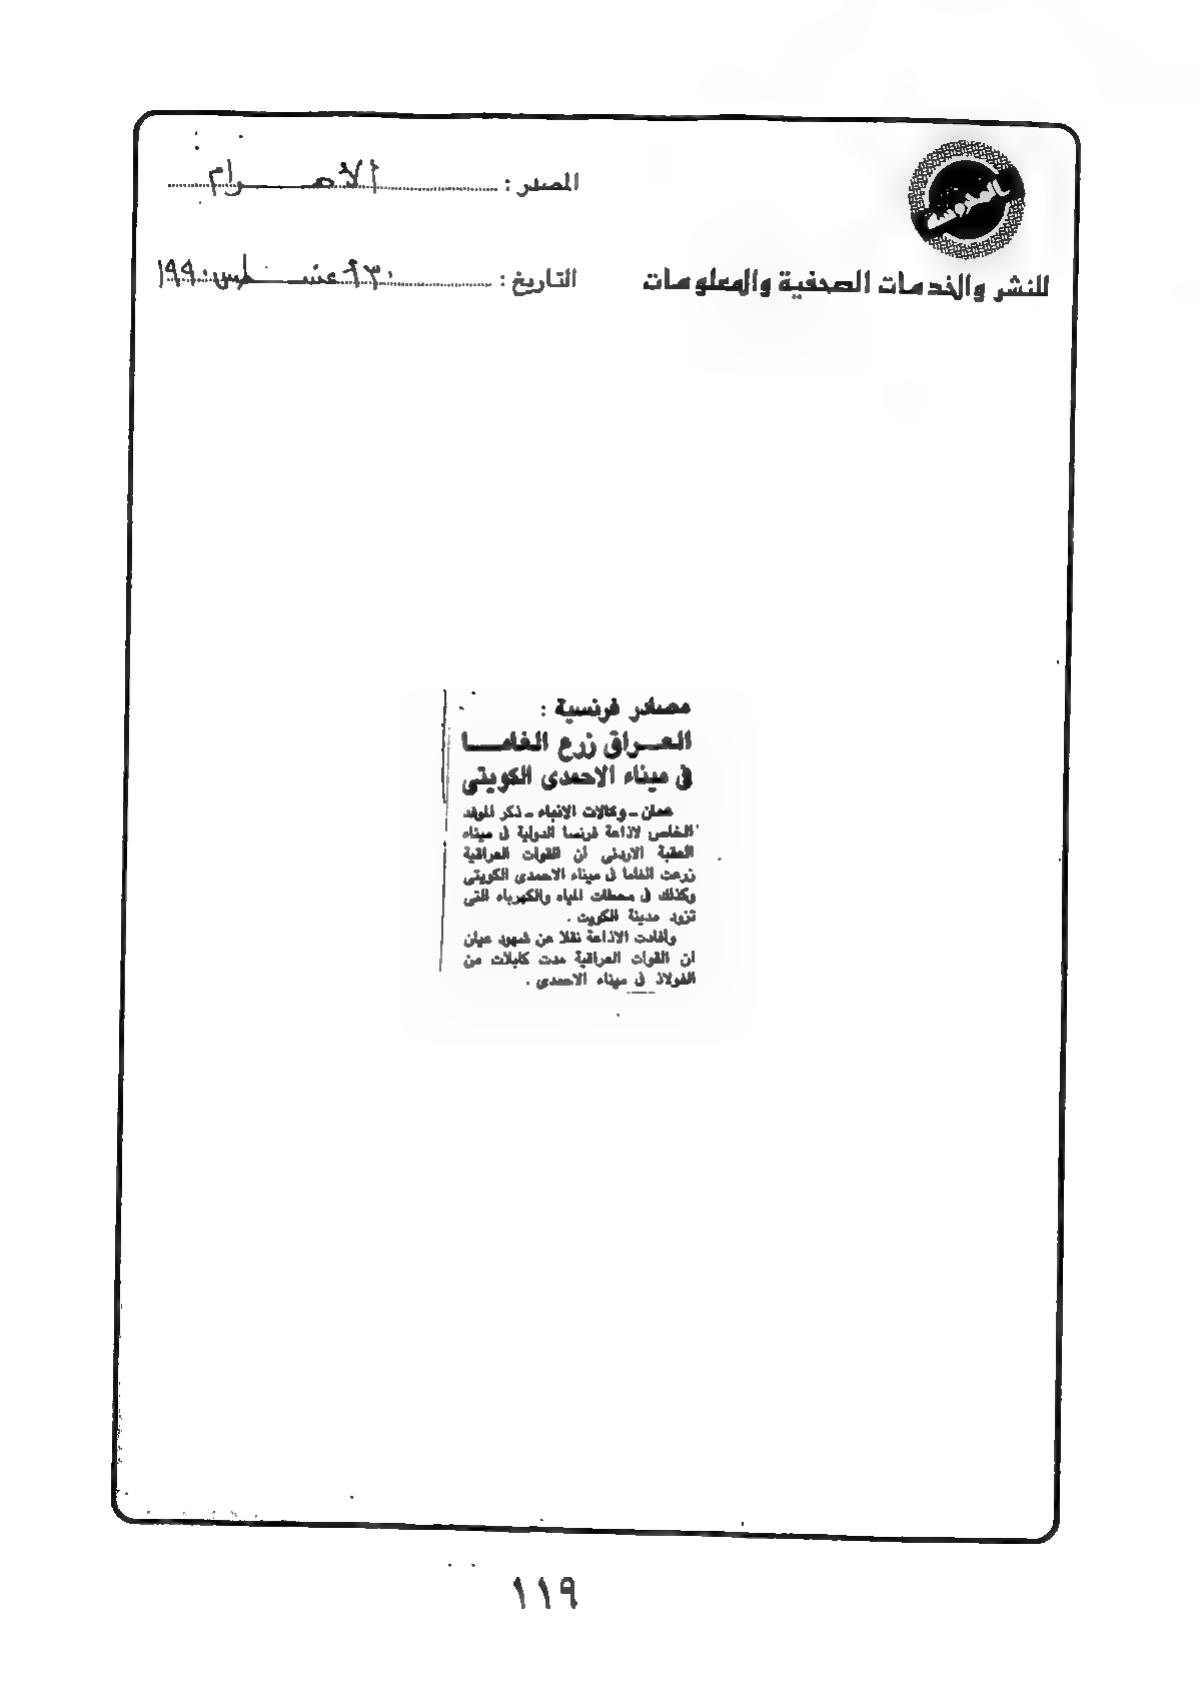 المصدر : الأهرام
المحروسة
للنشر والخدمات الصحفية والمعلومات
التاريخ : ٣٠ أغسطس ١٩٩٠
مصادر فرنسية :
العراق زرع الغاما
فى ميناء الاحمدى الكويتى
عمان - وكالات الانباء - ذكر الموفد
الخاص لاذاعة فرنسا الدولية فى ميناء
العقبة الاردنى ان القوات العراقية
زرعت الغاما فى ميناء الاحمدى الكويتى
وكذلك فى محطات المياه والكهرباء التى
تزود مدينة الكويت .
وافادت الاذاعة نقلا عن شهود عيان
ان القوات العراقية مدت كابلات من
الفولاذ فى ميناء الاحمدى .
١١٩